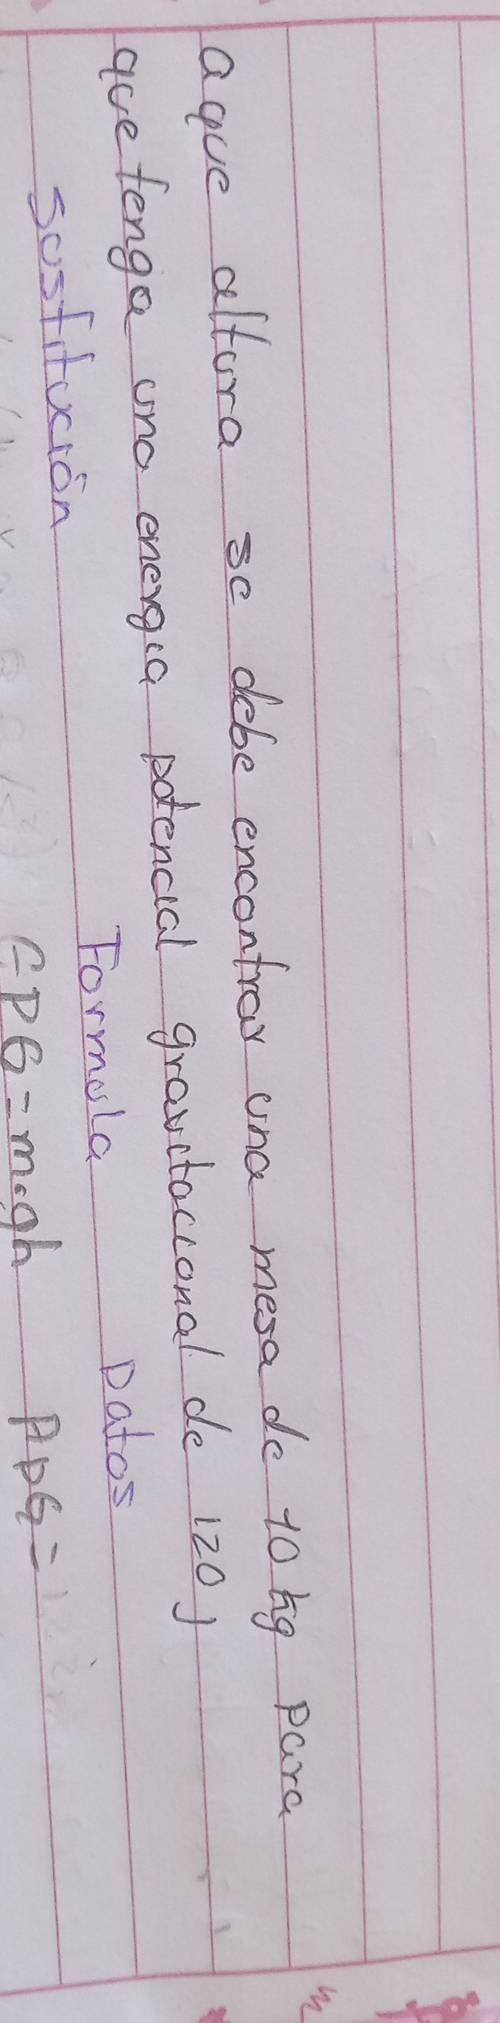 a que altura se debe encontrar una mesa de 10 kg para
que tenga una energia potencial gravitacional de 120 J
Sustitución Formula Datos
EPG = m.gh PPG =